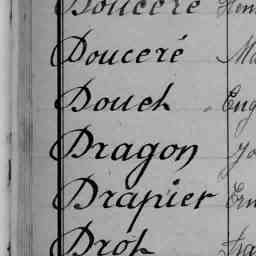 Douceré
Douceré Ma
Douch Eug
Dragon Jo
Drapier Ern
Drot